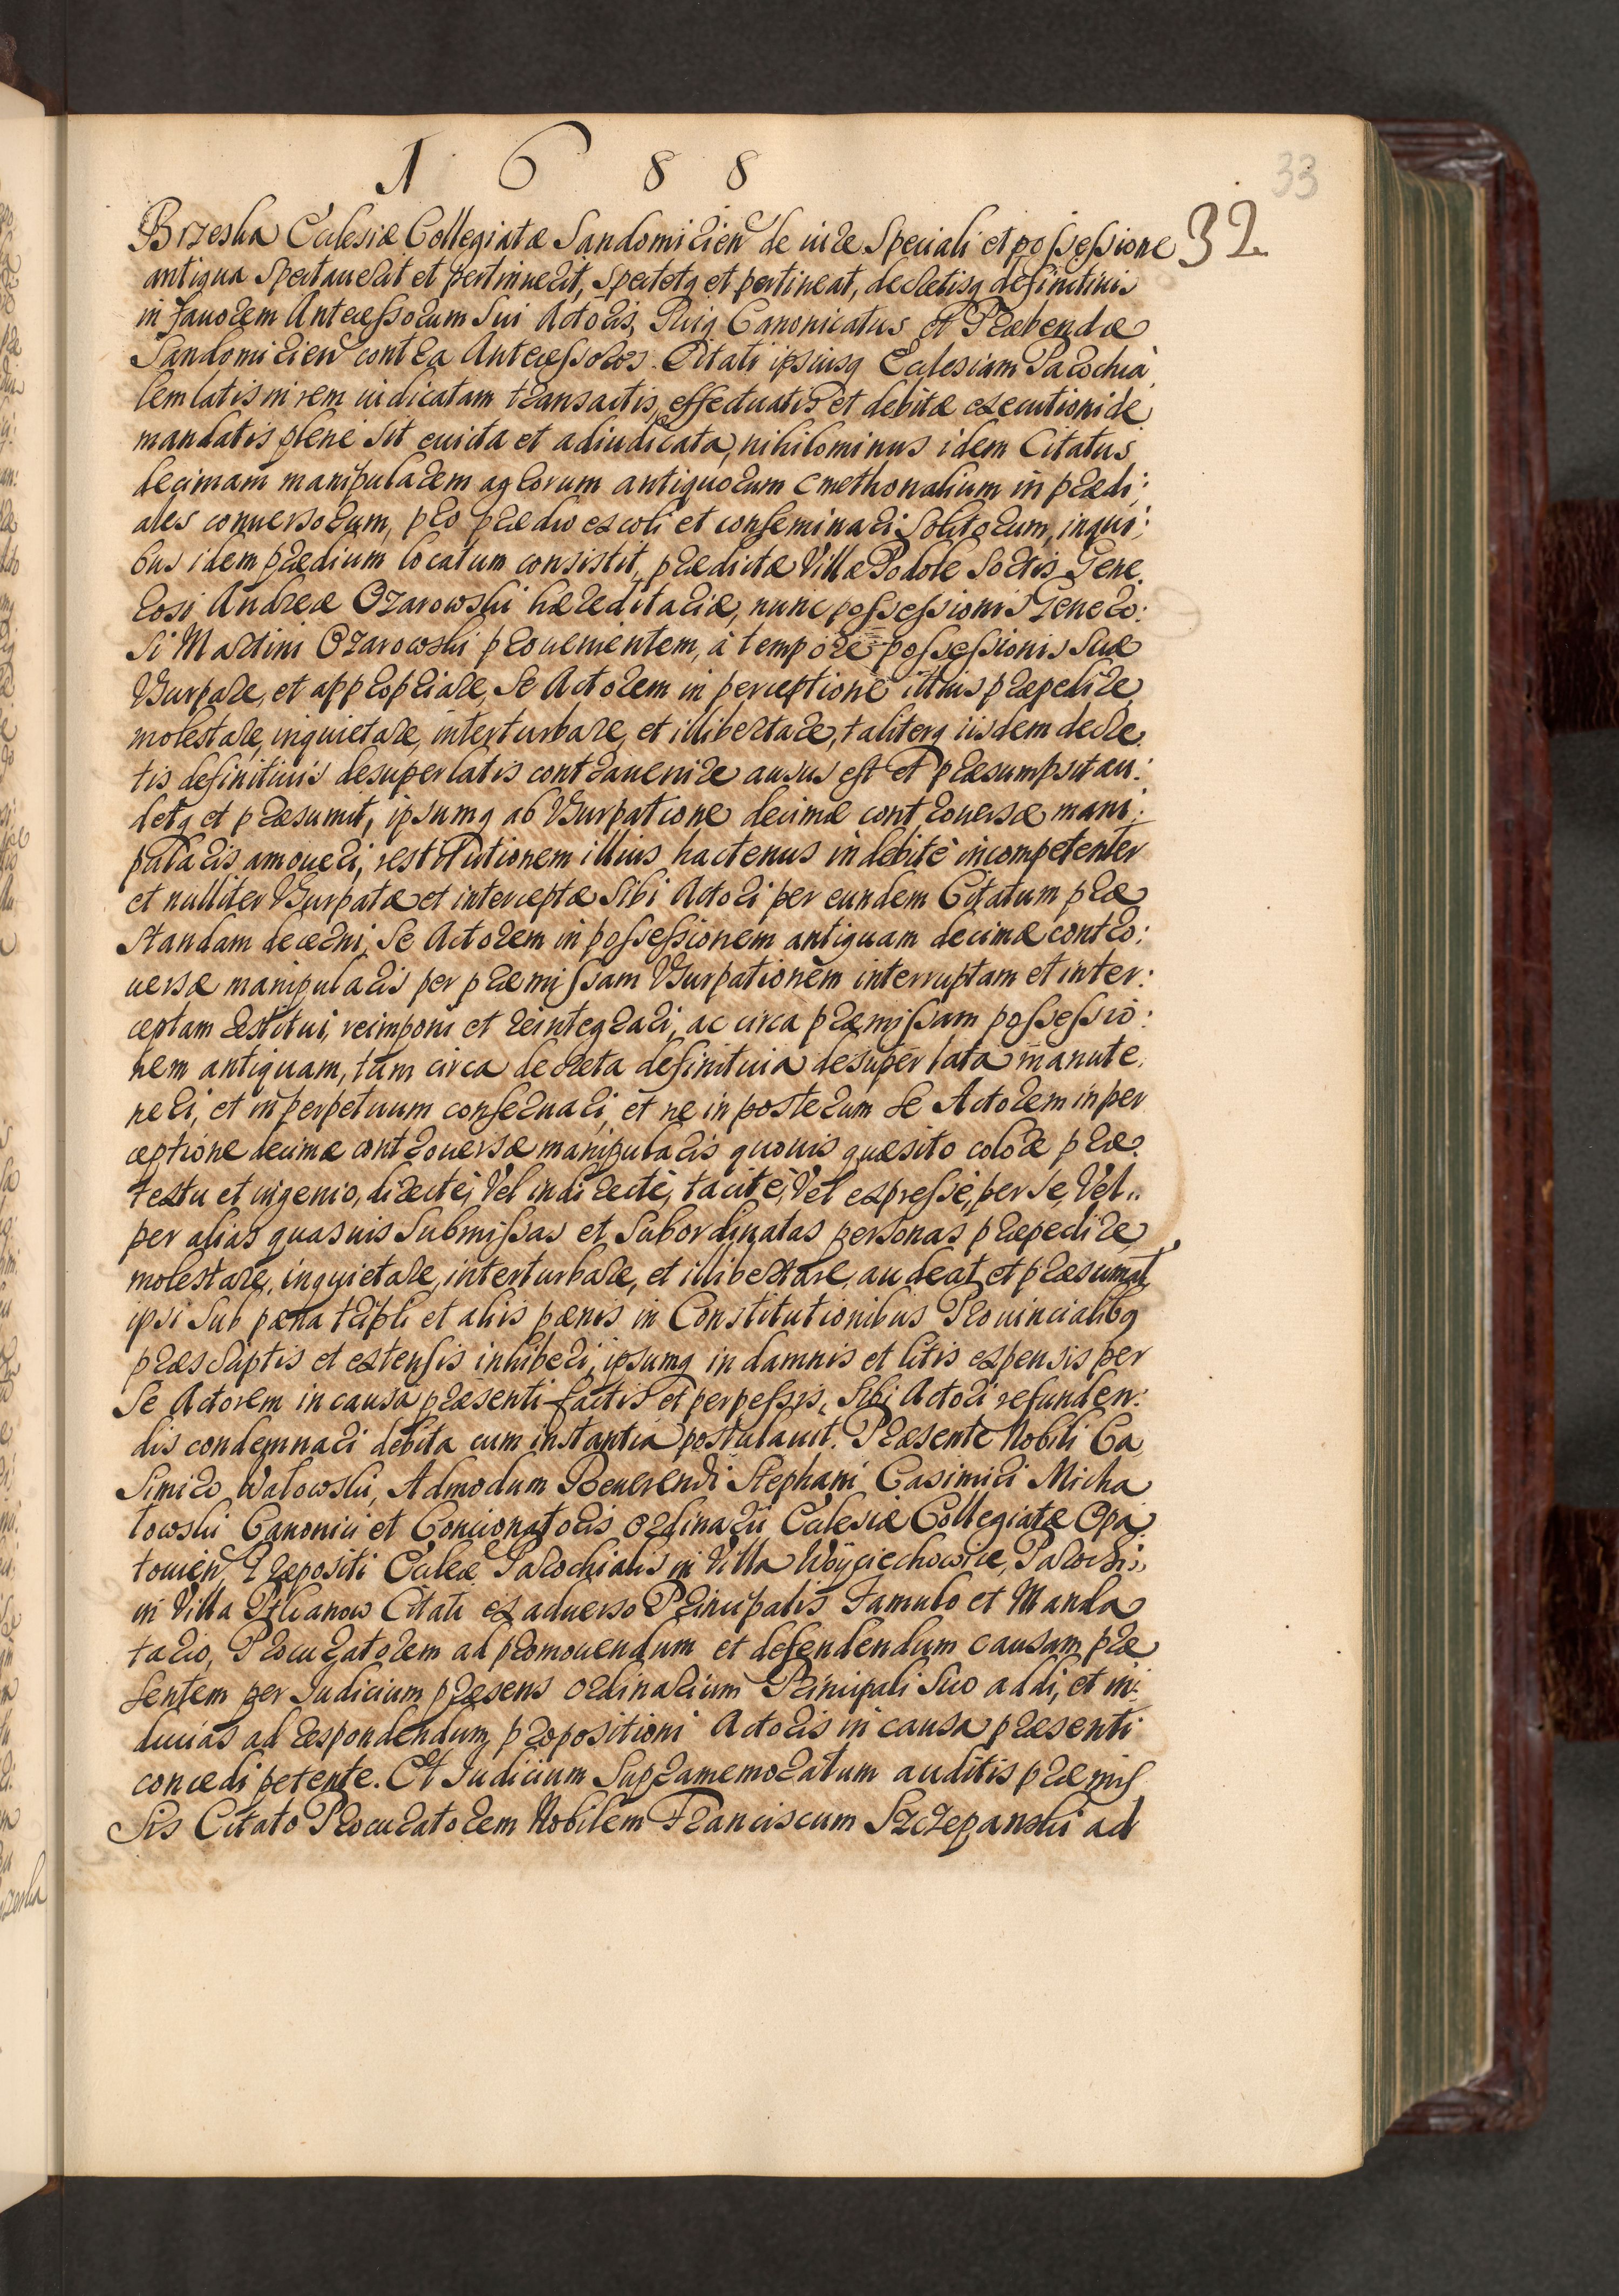 1688
33
32
Brzeska Eclesiæ Collegiatæ Sandomirien de iure Speciali et possessione
antiqua Spectauerit et pertinuerit, Spectetq et pertineat, decretisq definitiuis
in fauorem Antecessorum Sui Actoris, Suiq Canonicatus et Præbendæ
Sandomirien contra Antecessores Citati ipsiusq Eclesiam Parochia
lem latis in rem iudicatam transactis, effectuatis et debitæ executioni de
mandatis plene sit euicta et adiudicata, nihilominus idem Citatus
decimam manipularem agrorum antiquorum Cmethonalium in prædi:
ales conuersorum, pro prædio excoli et conseminari Solitorum, in qui:
bus idem prædium locatum consistit, prædictæ Villæ Podole Sortis Gene
rosi Andreæ Ozarowski hæreditariæ, nunc possessionis Genero:
si Martini Ozarowski prouenientem, à tempore possessionis Suæ
Vsurpare, et appropriare, Se Actorem in perceptione illius præpedire
molestare, inquietare, interturbare, et illibertare, taliterq iisdem decre
tis definitiuis desuper latis contrauenire ausus est et præsumpsit au:
detq et præsumit, ipsumq ab Vsurpatione decimæ controuersæ mani:
pularis amoueri, restitutionem illius hactenus indebitè incompetenter
et nulliter Vsurpatæ et interceptæ Sibi Actori per eundem Citatum præ
standam decerni, Se Actorem in possessionem antiquam decimæ contro:
uersæ manipularis per præmissam Vsurpationem interruptam et inter:
ceptam restitui, reimponi et reintegrari, ac circa præmissam possessio:
nem antiquam, tum circa decreta definitiua desuper lata manute
neri, et in perpetuum conseruari, et ne in posterum Se Actorem in per
ceptione decimæ controuersæ manipularis quouis quæsito colore præ
textu et ingenio, directè, Vel indirectè, tacitè, Vel expressè, per se, Vel
per alias quasuis Submissas et Subordinatas personas præpedire
molestare, inquietare, interturbare, et illibertare audeat et præsumat
ipsi Sub pæna tripli et aliis pænis in Constitutionibus Prouincialibq
præscriptis et extensis inhiberi, ipsumq in damnis et litis expensis per
Se Actorem in causa præsenti factis et perpessis, Sibi Actori refunden:
dis condemnari debita cum instantia postulauit. Præsente Nobili Ca
Simiro Walowski, Admodum Reuerendi Stephani Casimiri Micha
lowski Canonici et Concionatoris Ordinarii Eclesiæ Collegiatæ Opa
touien Præpositi Eclæ Parochialis in Villa Woyciechowice, Parochi
in Villa Ptkanow Citati ex aduerso Principalis Famulo et Manda
tario, Procuratorem ad promouendum et defendendum causam præ
sentem per Iudicium præsens Ordinarium Principali Suo addi, et in:
ducias ad respondendum propositioni Actoris in causa præsenti
concedi petente. Et Iudicium Supramemoratum auditis præmis
Sis Citato Procuratorem Nobilem Franciscum Szczepanski ad